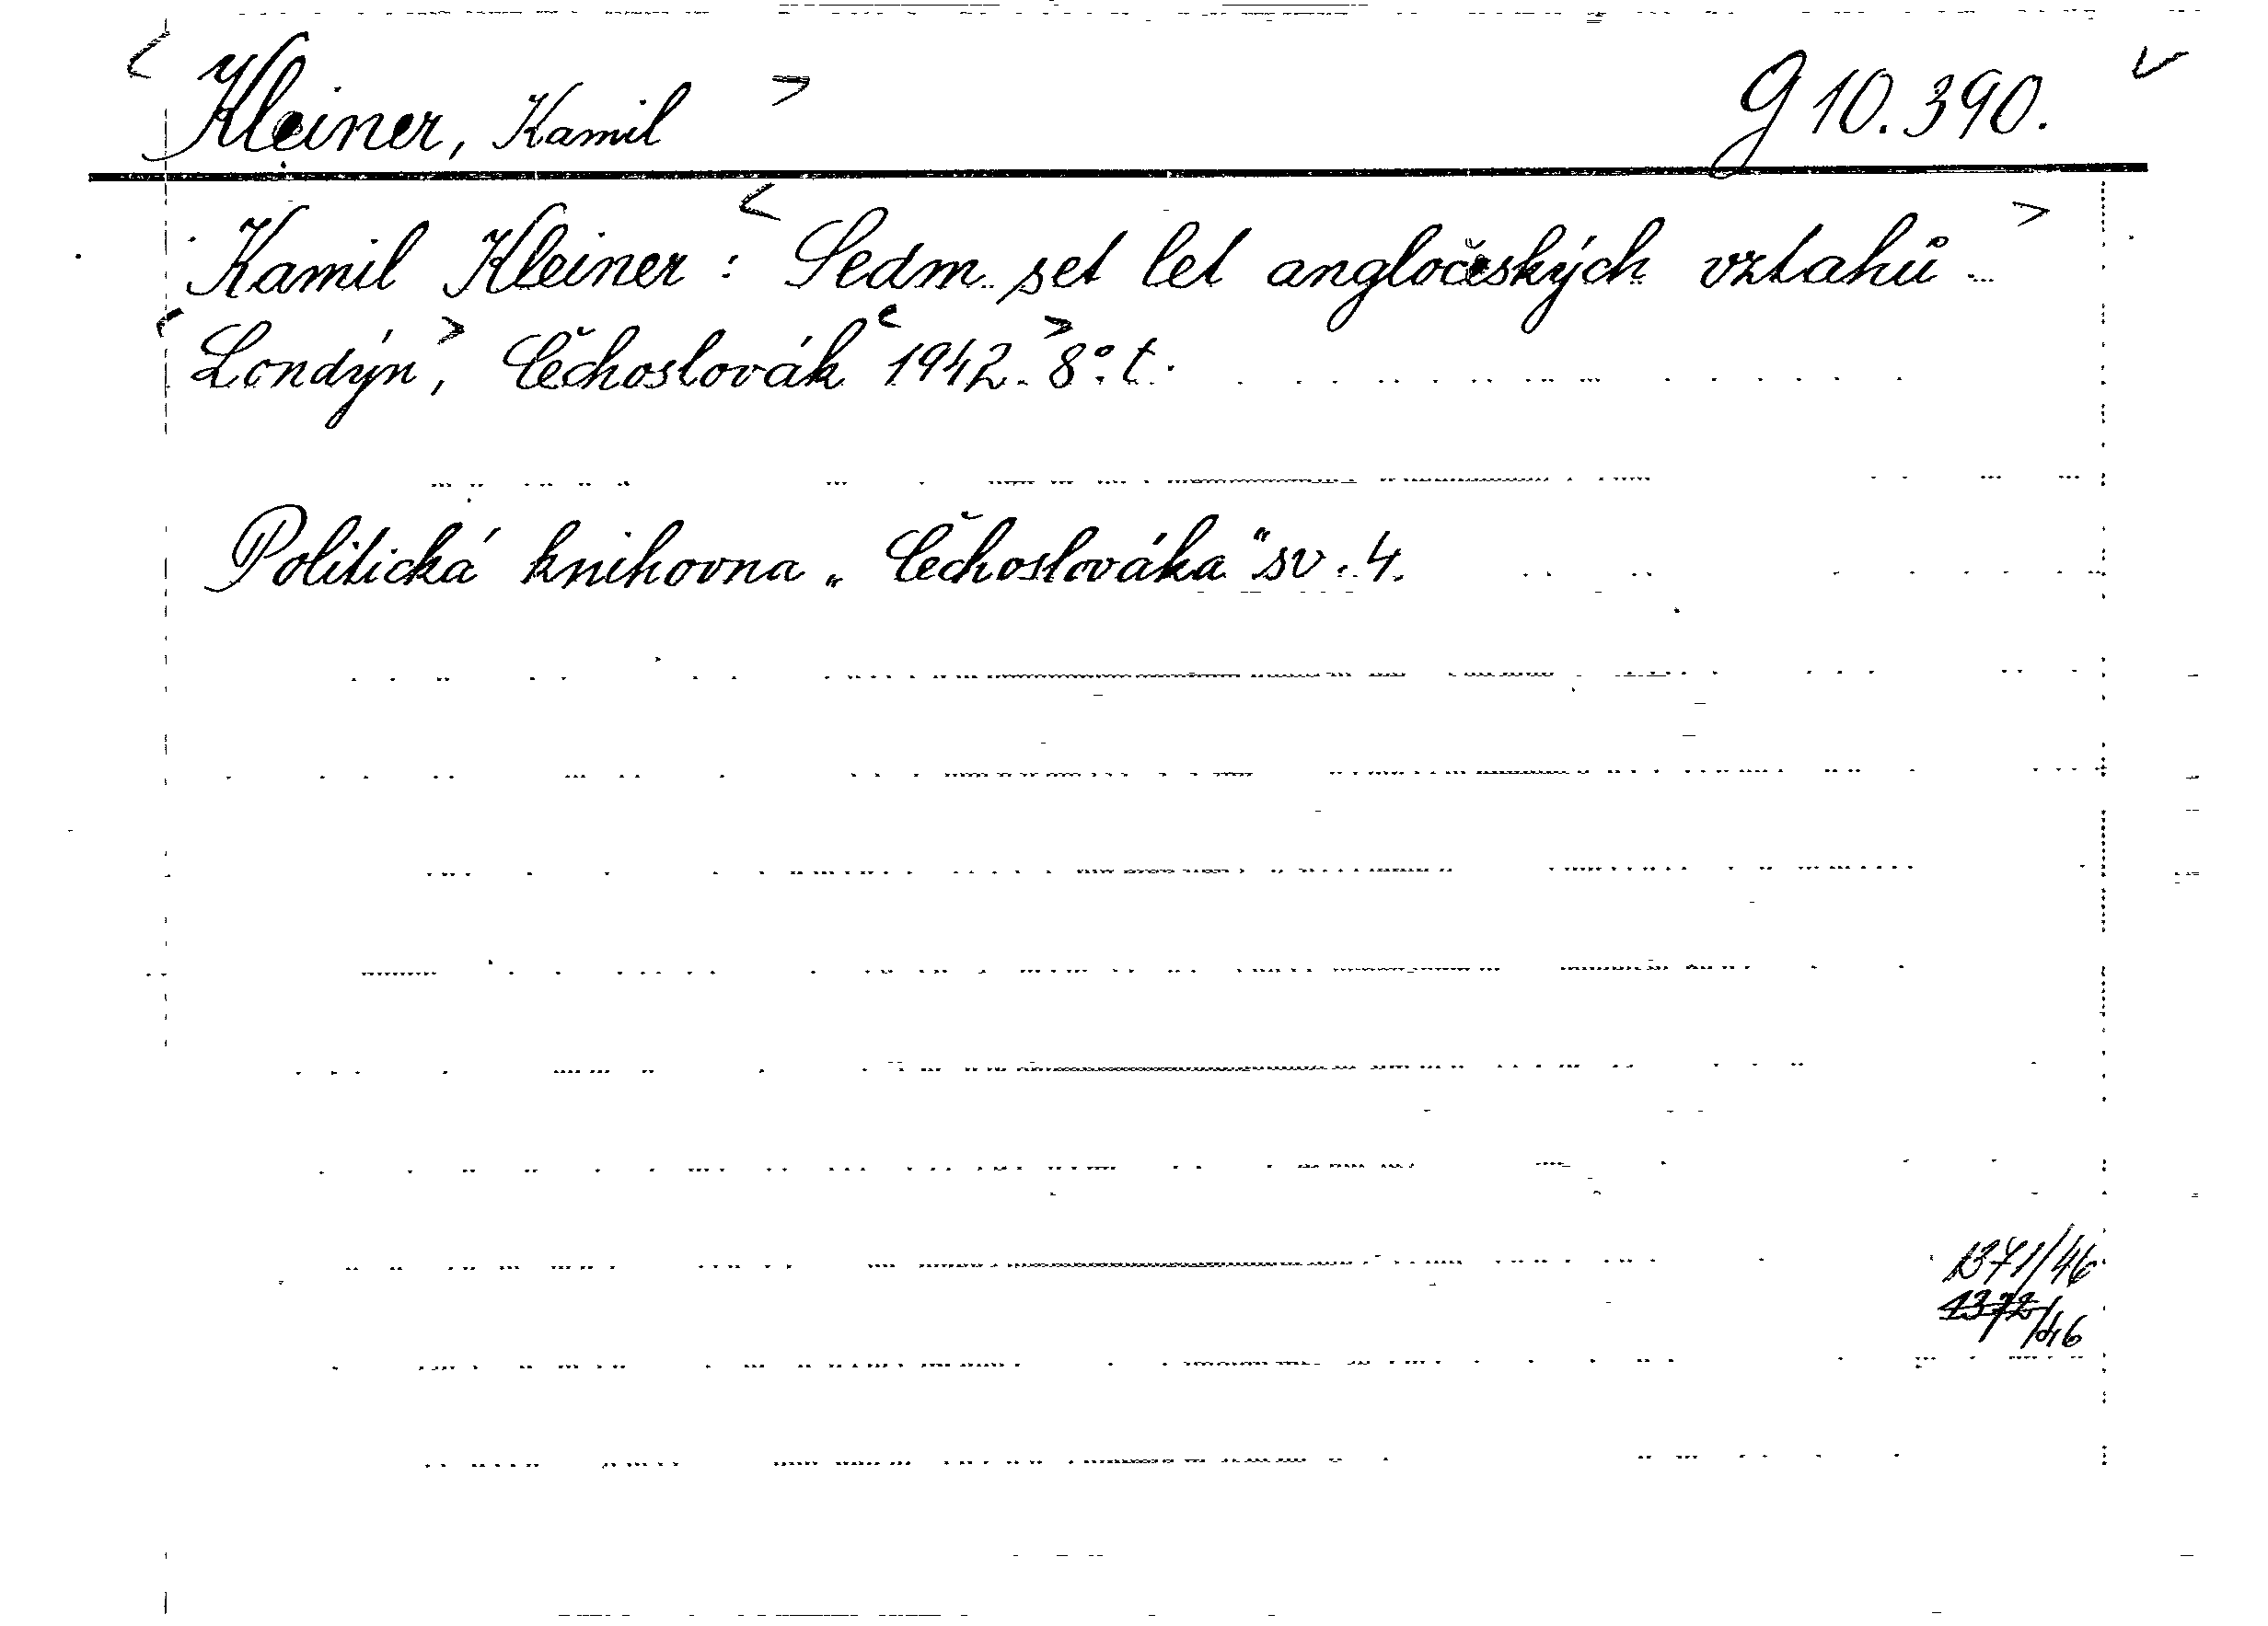 < Kleiner, Kamil > G 10.390. ✓
Kamil Kleiner : < Sedm set let angločeských vztahů >
< Londýn >, Čechoslovák < 1942. > 8°. t.
Politická knihovna „Čechoslováka“ sv. 4.
1371/46
1372/46